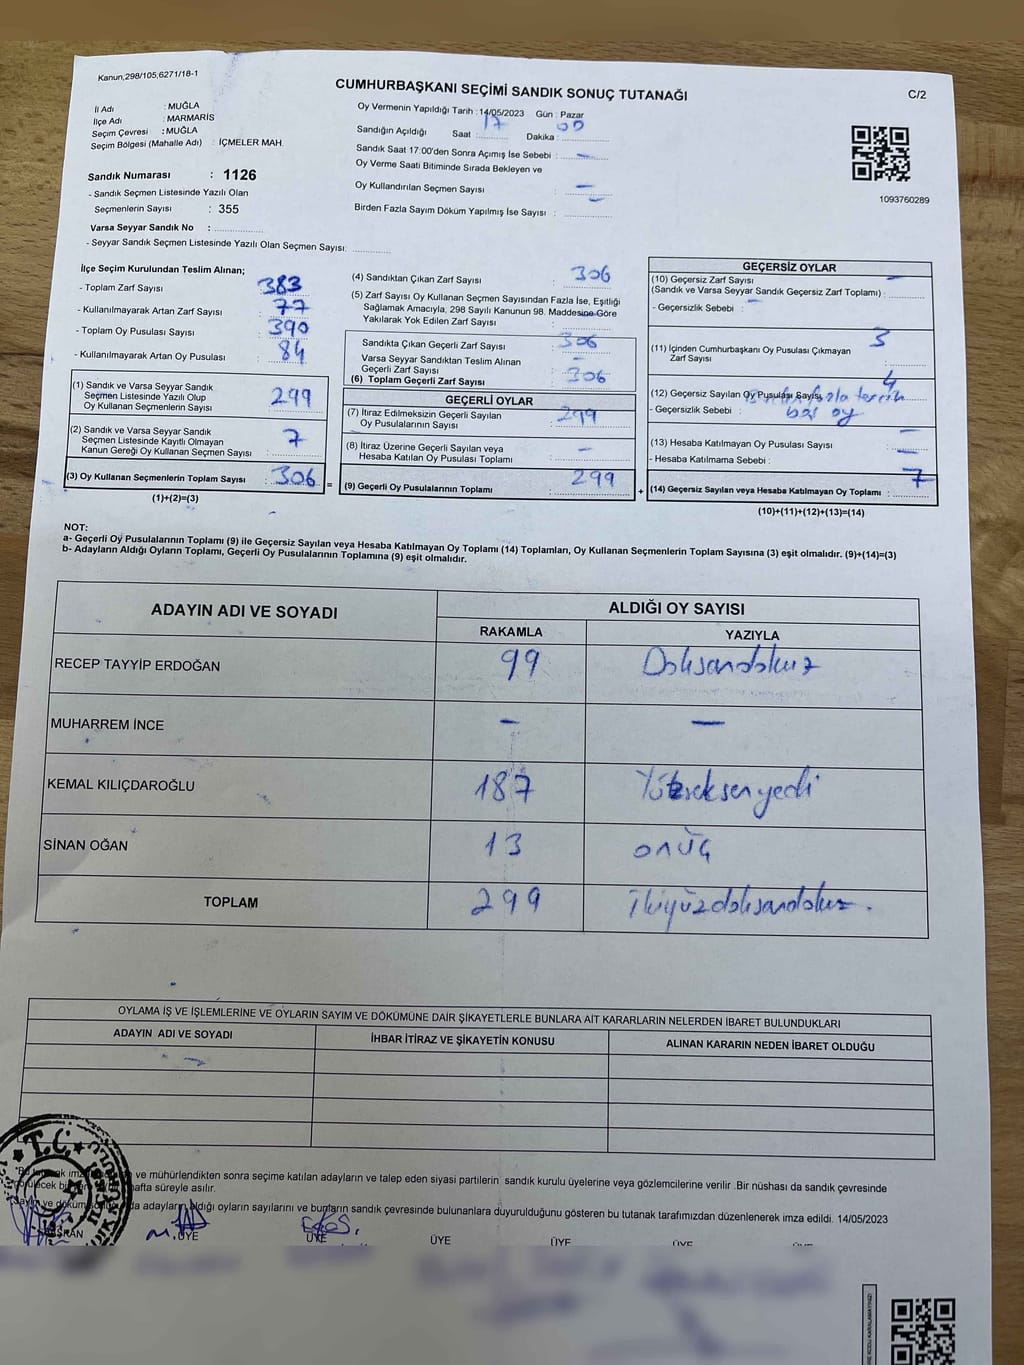 Kanun,298/105,6271/18-1
CUMHURBAŞKANI SEÇİMİ SANDIK SONUÇ TUTANAĞI
C/2
İl Adı : MUĞLA
İlçe Adı : MARMARİS
Seçim Çevresi : MUĞLA
Seçim Bölgesi (Mahalle Adı) : İÇMELER MAH.
Sandık Numarası : 1126
- Sandık Seçmen Listesinde Yazılı Olan
Seçmenlerin Sayısı : 355
Varsa Seyyar Sandık No :
- Seyyar Sandık Seçmen Listesinde Yazılı Olan Seçmen Sayısı:
Oy Vermenin Yapıldığı Tarih : 14/05/2023 Gün : Pazar
Sandığın Açıldığı Saat : 17 Dakika : 00
Sandık Saat 17:00'den Sonra Açımış İse Sebebi : -
Oy Verme Saati Bitiminde Sırada Bekleyen ve
Oy Kullandırılan Seçmen Sayısı : -
Birden Fazla Sayım Döküm Yapılmış İse Sayısı : -
1093760289
İlçe Seçim Kurulundan Teslim Alınan;
- Toplam Zarf Sayısı : 383
- Kullanılmayarak Artan Zarf Sayısı : 77
- Toplam Oy Pusulası Sayısı : 390
- Kullanılmayarak Artan Oy Pusulası : 84
(1) Sandık ve Varsa Seyyar Sandık
Seçmen Listesinde Yazılı Olup
Oy Kullanan Seçmenlerin Sayısı : 299
(2) Sandık ve Varsa Seyyar Sandık
Seçmen Listesinde Kayıtlı Olmayan
Kanun Gereği Oy Kullanan Seçmen Sayısı : 7
(3) Oy Kullanan Seçmenlerin Toplam Sayısı : 306 =
(1)+(2)=(3)
(4) Sandıktan Çıkan Zarf Sayısı : 306
(5) Zarf Sayısı Oy Kullanan Seçmen Sayısından Fazla İse, Eşitliği
Sağlamak Amacıyla, 298 Sayılı Kanunun 98. Maddesine Göre
Yakılarak Yok Edilen Zarf Sayısı :
Sandıkta Çıkan Geçerli Zarf Sayısı : 306
Varsa Seyyar Sandıktan Teslim Alınan
Geçerli Zarf Sayısı : -
(6) Toplam Geçerli Zarf Sayısı : 306
GEÇERLİ OYLAR
(7) İtiraz Edilmeksizin Geçerli Sayılan
Oy Pusulalarının Sayısı : 299
(8) İtiraz Üzerine Geçerli Sayılan veya
Hesaba Katılan Oy Pusulası Toplamı : -
(9) Geçerli Oy Pusulalarının Toplamı : 299 +
GEÇERSİZ OYLAR
(10) Geçersiz Zarf Sayısı
(Sandık ve Varsa Seyyar Sandık Geçersiz Zarf Toplamı) : -
- Geçersizlik Sebebi : -
(11) İçinden Cumhurbaşkanı Oy Pusulası Çıkmayan
Zarf Sayısı : 3
(12) Geçersiz Sayılan Oy Pusulası Sayısı : 4
- Geçersizlik Sebebi : fazla tercih
boş oy
(13) Hesaba Katılmayan Oy Pusulası Sayısı : -
- Hesaba Katılmama Sebebi : -
(14) Geçersiz Sayılan veya Hesaba Katılmayan Oy Toplamı : 7
(10)+(11)+(12)+(13)=(14)
NOT:
a- Geçerli Oy Pusulalarının Toplamı (9) ile Geçersiz Sayılan veya Hesaba Katılmayan Oy Toplamı (14) Toplamları, Oy Kullanan Seçmenlerin Toplam Sayısına (3) eşit olmalıdır. (9)+(14)=(3)
b- Adayların Aldığı Oyların Toplamı, Geçerli Oy Pusulalarının Toplamına (9) eşit olmalıdır.
ADAYIN ADI VE SOYADI ALDIĞI OY SAYISI
RAKAMLA YAZIYLA
RECEP TAYYİP ERDOĞAN 99 Doksandokuz
MUHARREM İNCE - -
KEMAL KILIÇDAROĞLU 187 Yüzseksenyedi
SİNAN OĞAN 13 onüç
TOPLAM 299 ikiyüzdoksandokuz.
OYLAMA İŞ VE İŞLEMLERİNE VE OYLARIN SAYIM VE DÖKÜMÜNE DAİR ŞİKAYETLERLE BUNLARA AİT KARARLARIN NELERDEN İBARET BULUNDUKLARI
ADAYIN ADI VE SOYADI İHBAR İTİRAZ VE ŞİKAYETİN KONUSU ALINAN KARARIN NEDEN İBARET OLDUĞU
T.C.
ve mühürlendikten sonra seçime katılan adayların ve talep eden siyasi partilerin sandık kurulu üyelerine veya gözlemcilerine verilir .Bir nüshası da sandık çevresinde
hafta süreyle asılır.
adayların aldığı oyların sayılarını ve bunların sandık çevresinde bulunanlara duyurulduğunu gösteren bu tutanak tarafımızdan düzenlenerek imza edildi. 14/05/2023
BAŞKAN ÜYE ÜYE ÜYE ÜYE ÜYE